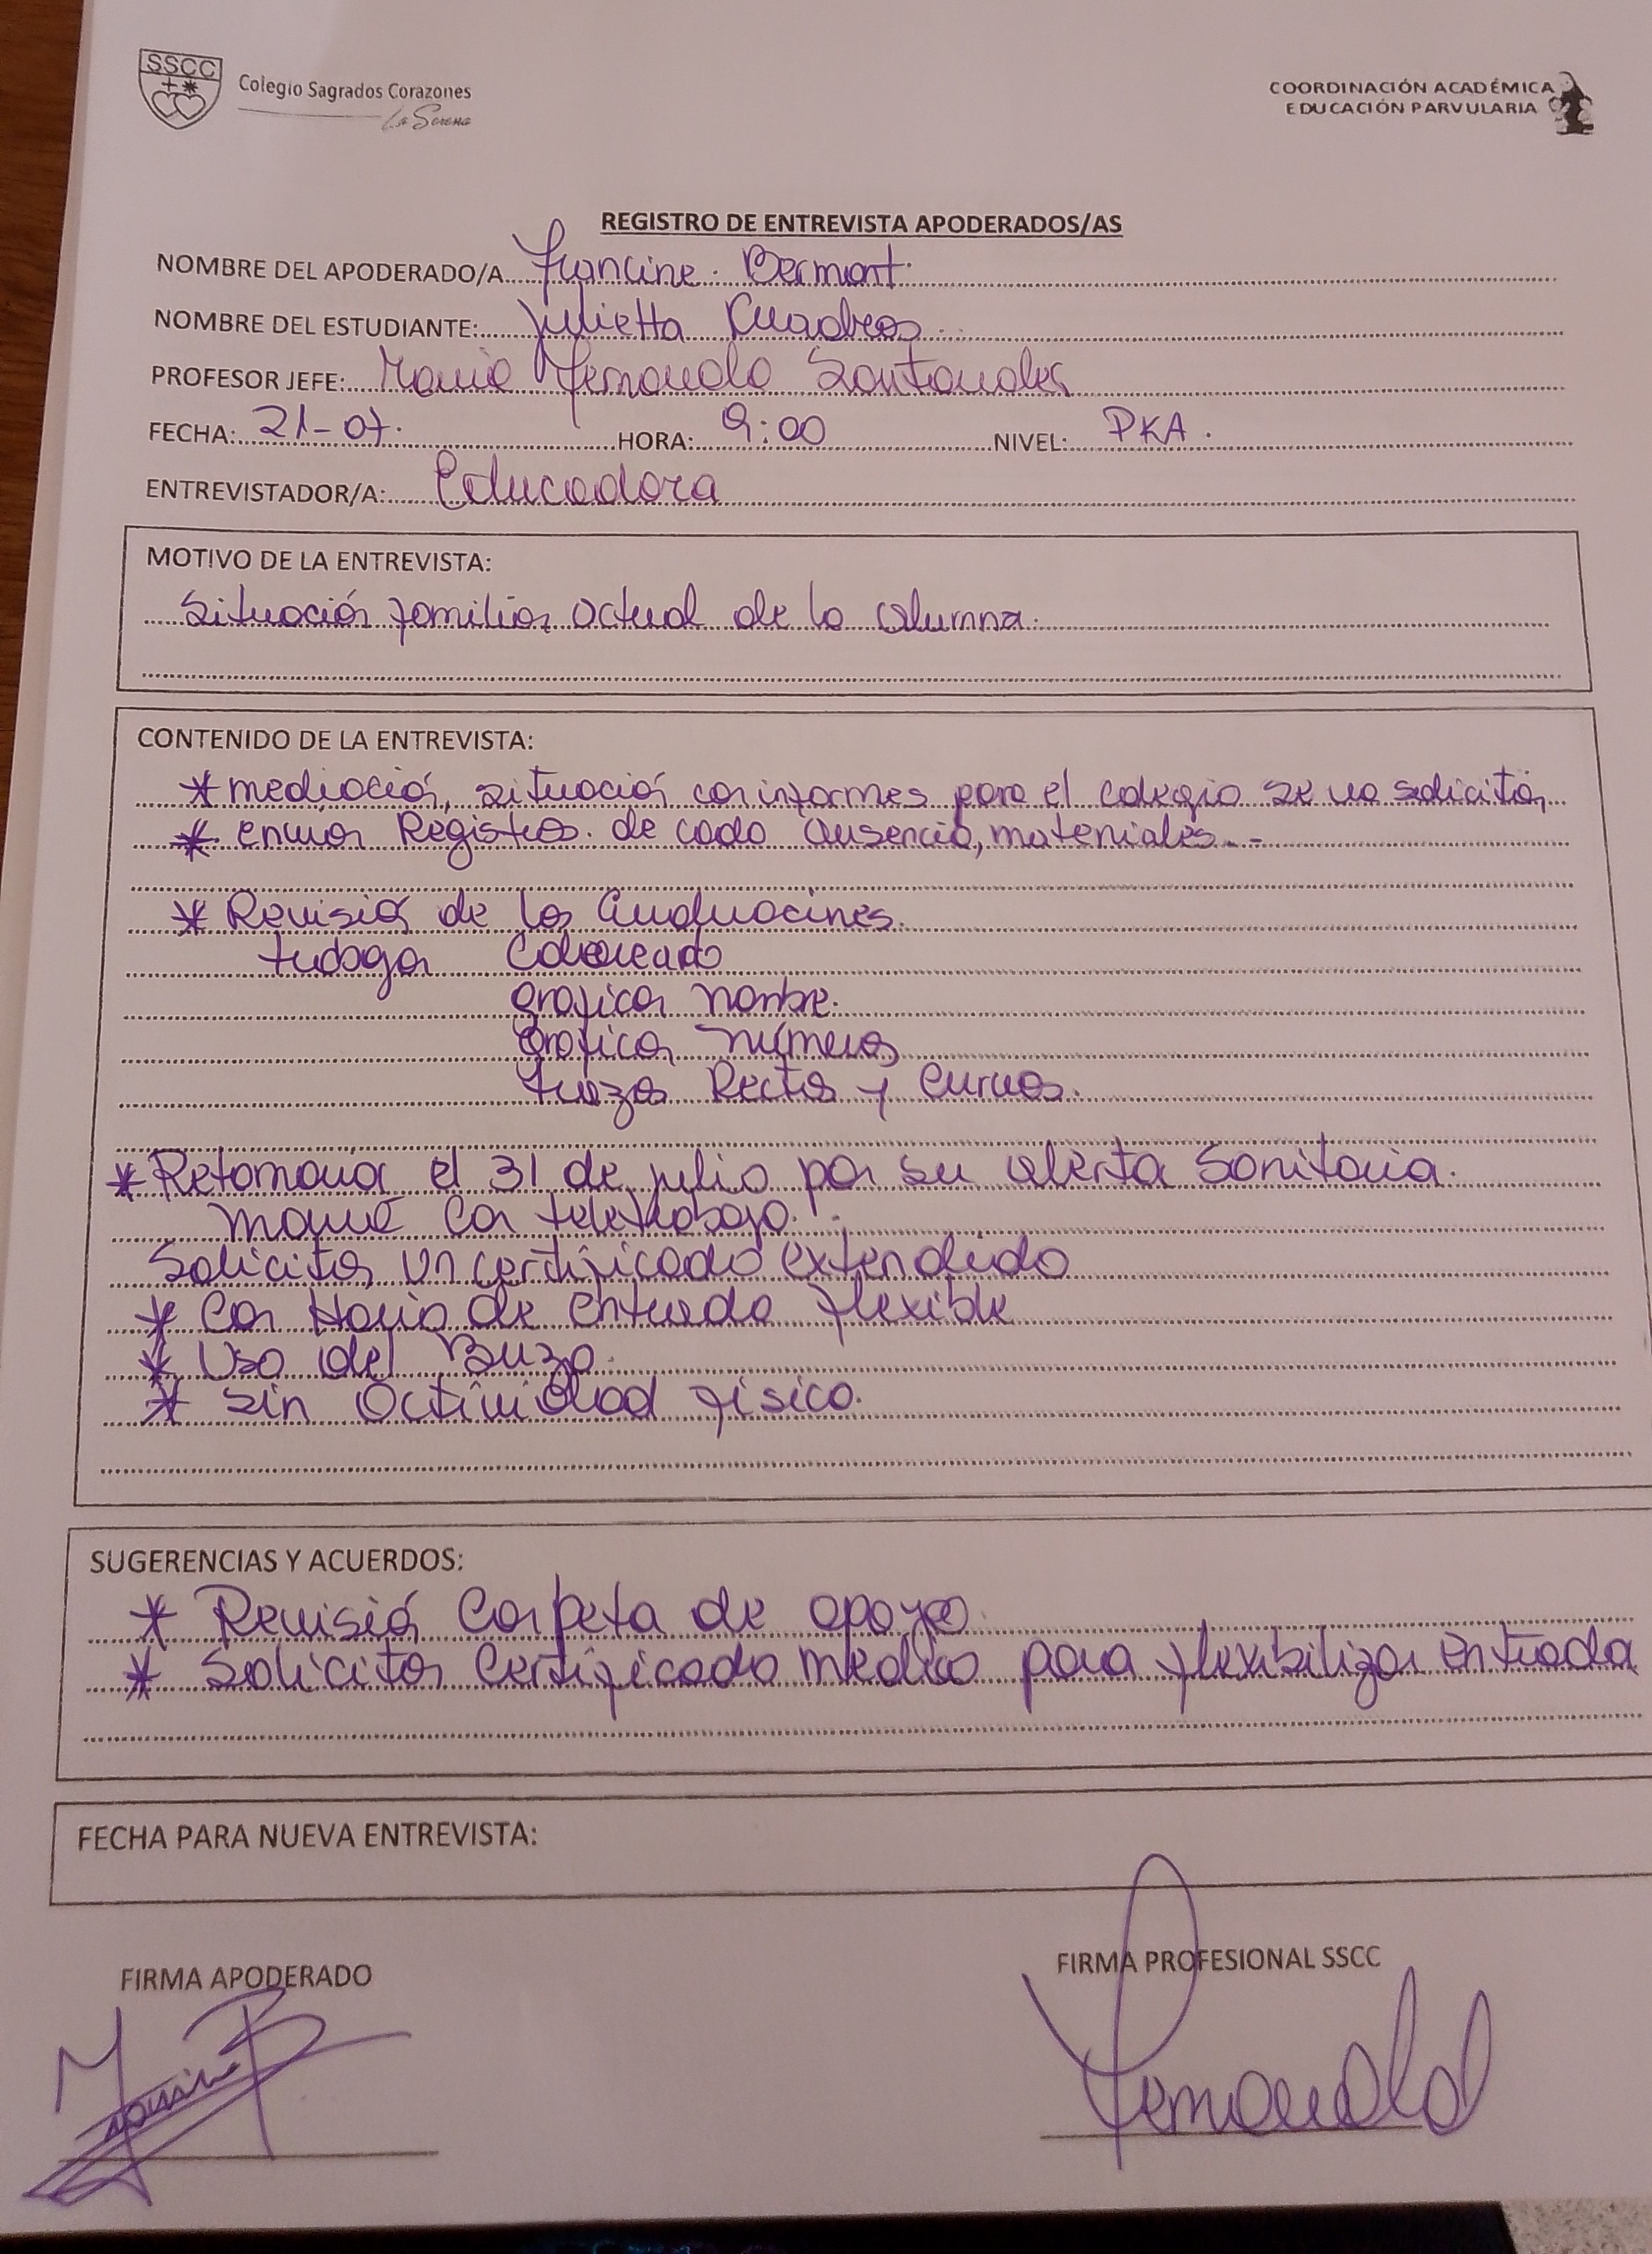 SSCC
Colegio Sagrados Corazones
La Serena
COORDINACIÓN ACADÉMICA
EDUCACIÓN PARVULARIA
REGISTRO DE ENTREVISTA APODERADOS/AS
NOMBRE DEL APODERADO/A Francine Bermont
NOMBRE DEL ESTUDIANTE: Julietta Cuadros
PROFESOR JEFE: María Fernanda Santander
FECHA: 21-07. HORA: 9:00 NIVEL: PKA.
ENTREVISTADOR/A: Educadora
MOTIVO DE LA ENTREVISTA:
Situación familiar actual de la alumna.
CONTENIDO DE LA ENTREVISTA:
* mediación, situación con informes para el colegio se va solicitar
* enviar Registros de cada ausencia, materiales. -
* Revisión de las
Trabajar Coloreado
graficar nombre.
graficar números
trazos Rectos y curvos.
* Retomará el 31 de julio por su alerta Sanitaria.
mamá con teletrabajo.
Solicitar un certificado extendido
* Con Horario de entrada flexible
* Uso del Buzo.
* sin actividad física.
SUGERENCIAS Y ACUERDOS:
* Revisión Carpeta de apoyo.
* Solicitar Certificado médico para flexibilizar entrada
FECHA PARA NUEVA ENTREVISTA:
FIRMA APODERADO
FIRMA PROFESIONAL SSCC